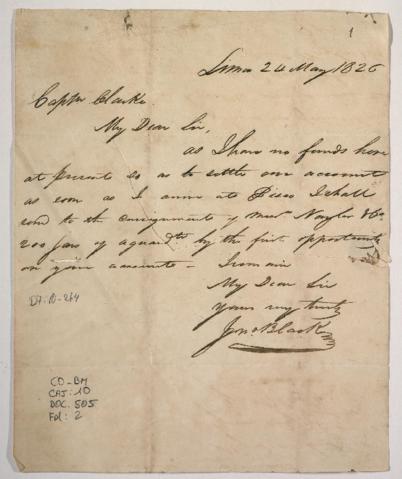 1
Lima 24 May 1826
Captn Clarke
My Dear Sir,
as I have no funds here
at present so as to settle our account
as soon as I arrive at Pisco I shall
send to the consignment of Messrs Naylor &Co
200 Jars of aguardte by the first opportunity
on your account – I remain
My Dear Sir
Yours very truly
Jno Black
D7-10-264
CO-BM
CAJ: 10
DOC. 505
Fol: 2